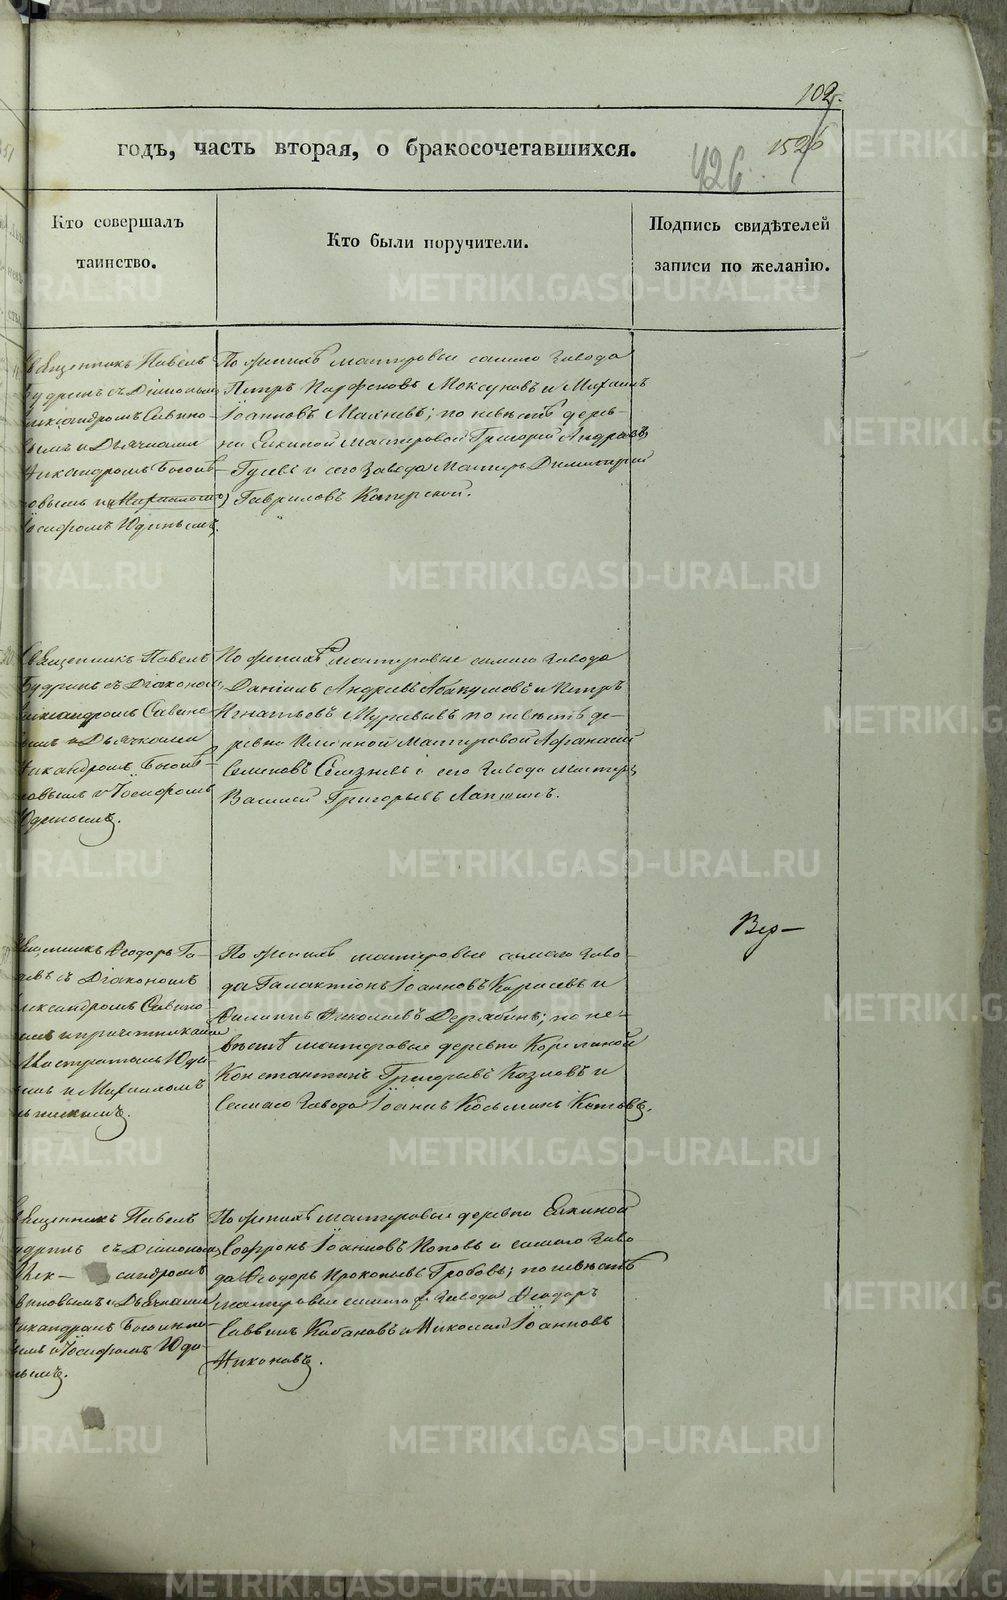 102.
годъ, часть вторая, о бракосочетавшихся.
426.
152
Кто совершалъ
таинство.
Кто были поручители.
Подпись свидѣтелей
записи по желанію.
Священникъ Павелъ
Кудринъ съ Діакономъ
Александромъ Савино-
вымъ и Дьячками
Никандромъ
и
Іосифомъ Юдинымъ.
По женихѣ мастеровые самаго завода
Петръ Парфеновъ Моксуновъ и Михаилъ
Іоанновъ Махневъ; по невѣстѣ дерев-
ни Елкиной мастеровой Григорій Андреевъ
Гусевъ и сего завода мастеръ Димитрій
Гавриловъ
Священникъ Павелъ
Кудринъ съ Діакономъ
Александромъ Савино-
вымъ и Дьячками
Никандромъ
и Іосифомъ
Юдинымъ.
По женихѣ мастеровые самаго завода
Даніилъ Андреевъ Абакумовъ и Петръ
Игнатьевъ по невѣстѣ де-
ревни мастеровой Афанасій
Семеновъ Селезневъ и сего завода мастеръ
Василій Григорьевъ Лапшинъ.
Вер-
Священникъ Ѳеодоръ
съ Діакономъ
Александромъ Савино-
вымъ и причетниками
Юди-
нымъ и Михаиломъ
По женихѣ мастеровые самаго заво-
да Галактіонъ Іоанновъ Карасевъ и
Филиппъ Николаевъ Дерябинъ; по не-
вѣстѣ мастеровые деревни Корелиной
Константинъ Григорьевъ Козловъ и
самаго завода Іоаннъ Косьминъ Котовъ.
Священникъ Павелъ
Кудринъ съ Діакономъ
Алек- сандромъ
Савиновымъ и Дьячками
Никандромъ
и Іосифомъ Юди-
нымъ.
По женихѣ мастеровые деревни Елкиной
Софронъ Іоанновъ Поповъ и самаго заво-
да Ѳеодоръ Прокопьевъ Гробовъ; по невѣстѣ
мастеровые самаго завода Ѳеодоръ
Саввинъ Кабановъ и Николай Іоанновъ
Никоновъ.
METRIKI.GASO-URAL.RU